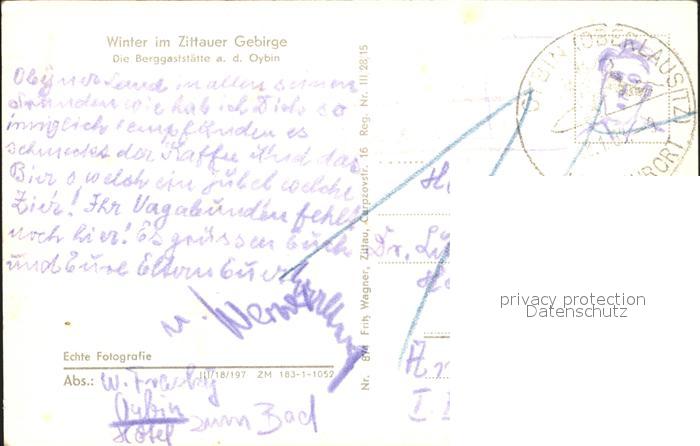 Winter im Zittauer Gebirge
Die Berggaststätte a. d. Oybin
Obyner Land in allen seinen
wie hab ich Dich so
inniglich empfunden es
schmeckt der Kaffee und das
Bier o welch ein Jubel welche
Zier! Ihr Vagabunden fehlt
noch hier! Es grüssen Euch
und Eure Eltern Euer
u. Werner
Echte Fotografie
III/18/197 ZM 183-1-1052
Abs.: W.
Oybin
Hotel zum Bad
Nr. 874 Fritz Wagner, Zittau, Carpzovstr. 16 Reg. Nr. III 28 15
OYBIN (OBERLAUSITZ)
KURORT
Dr.
privacy protection
Datenschutz